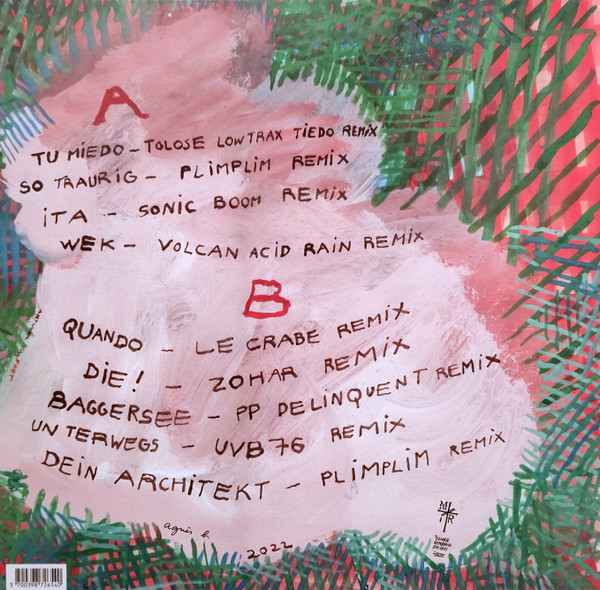 A
TU MIEDO – TOLOSE LOWTRAX TIEDO REMIX
SO TRAURIG – PLIMPLIM REMIX
iTA – SONIC BOOM REMIX
WEK – VOLCAN ACID RAIN REMIX
B
QUANDO – LE CRABE REMIX
DIE! – ZOHAR REMIX
BAGGERSEE – PP DELINQUENT REMIX
UNTERWEGS – UVB76 REMIX
DEIN ARCHITEKT – PLIMPLIM REMIX
agnès b.
2022
M
R
3 700398 726540